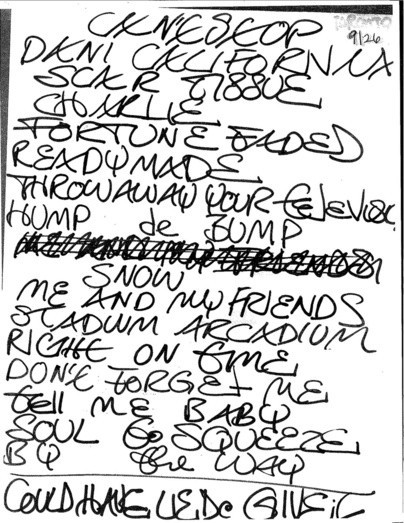 CAN'T STOP
TORONTO
9/26
DANI CALIFORNIA
SCAR TISSUE
CHARLIE
FORTUNE FADED
READYMADE
THROW AWAY YOUR TELEVISI
HUMP de BUMP
ME AND MY FRIENDS
SNOW
ME AND MY FRIENDS
STADIUM ARCADIUM
RIGHT ON TIME
DON'T FORGET ME
tell ME BABY
SOUL to SQUEEZE
BY the WAY
COULD HAVE LIED GIVE it